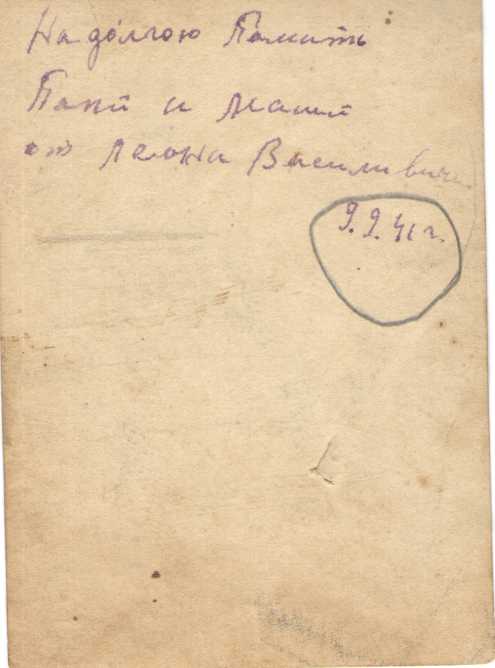 На долгою Памить
Пани и маши
от леона Василивича
9.9.41 г.